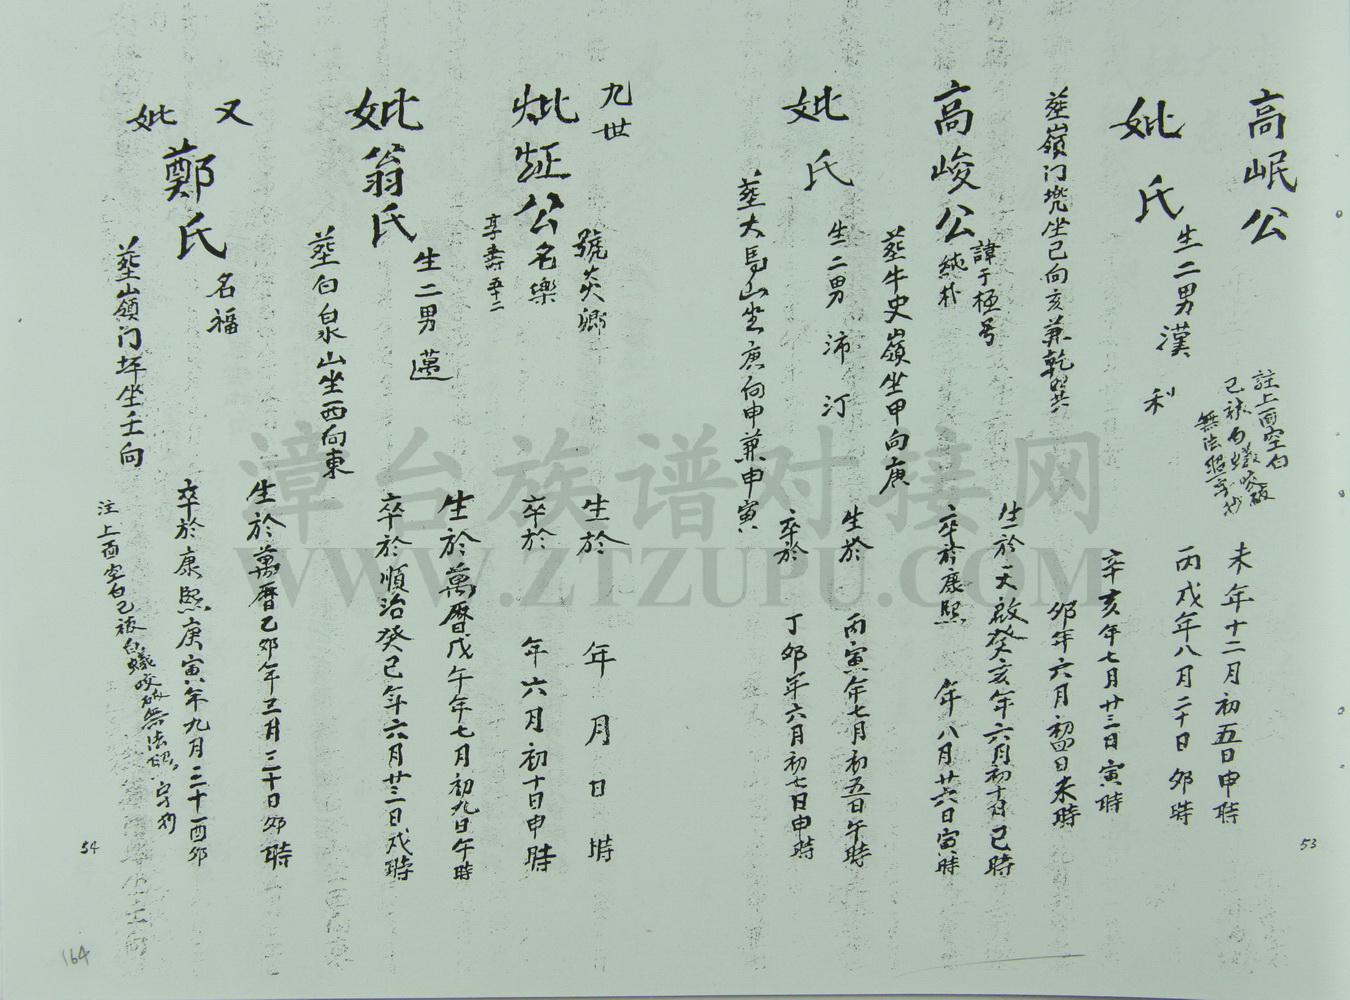 高岷公
註上面空白
已被白蟻咬破
無法照字抄
未年十二月初五日申時
丙戌年八月二十日卯時
妣氏
生二男 漢 利
辛亥年七月廿三日寅時
卯年六月初四日未時
塟嶺门垅坐巳向亥兼乾巽
高峻公
諱于極号
純朴
生於天啟癸亥年六月初十日巳時
卒於康熙 年八月廿六日寅時
塟牛史嶺坐甲向庚
妣氏
生二男 沛 汀
生於 丙寅年七月初五日午時
卒於 丁卯年六月初七日申時
塟大馬山坐庚向申兼申寅
九世
公名樂
號炎卿
享壽五十二
生於 年 月 日 時
卒於 年六月初十日申時
妣翁氏
生二男 邁
生於萬曆戊午年七月初九日午時
卒於順治癸巳年六月廿三日戌時
塟白泉山坐西向東
又
妣
鄭氏
名福
生於萬曆乙卯年三月三十日卯時
卒於康熙庚寅年九月二十酉卯
塟嶺门坪坐壬向
注上面空白已被白蟻咬破無法照字抄
53
54
164
漳台族谱对接网
WWW.ZTZUPU.COM